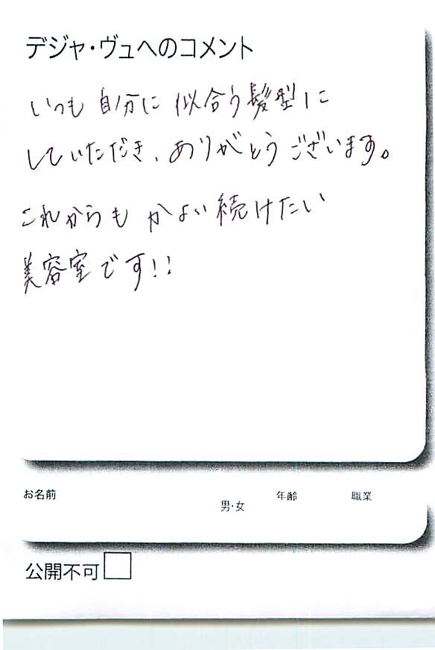 デジャ・ヴュへのコメント
いつも 自分に 似合う髪型に
していただき、ありがとうございます。
これからも かよい続けたい
美容室です!!
お名前
男・女
年齢
職業
公開不可